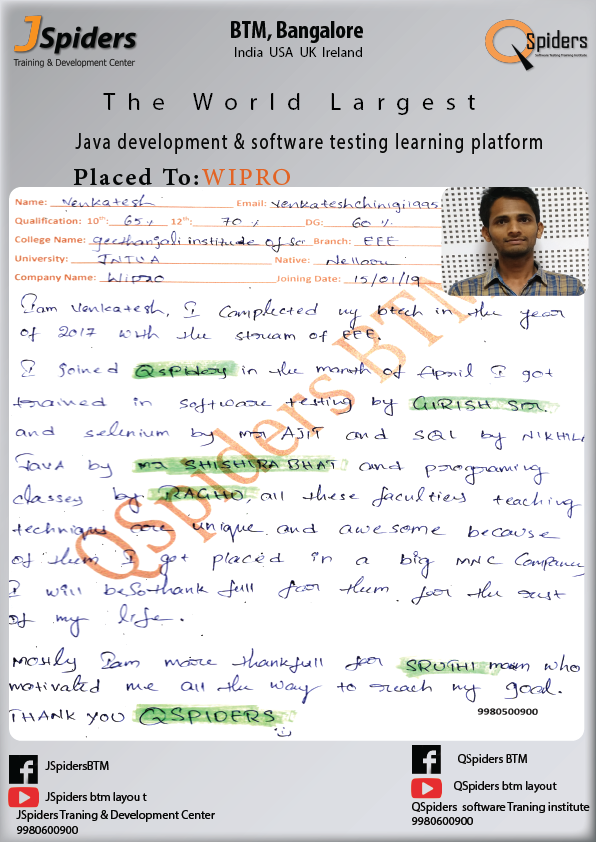 JSpiders
Training & Development Center
BTM, Bangalore
India USA UK Ireland
QSpiders
Software Testing Training Institute
The World Largest
Java development & software testing learning platform
Placed To:WIPRO
Name: Venkatesh Email: venkateshchinigi1995
Qualification: 10th: 65% 12th: 70% DG: 60%
College Name: geethanjali institude of sci Branch: EEE
University: JNTUA Native: Nellore
Company Name: Wipro Joining Date: 15/01/19
Iam Venkatesh, I complected my btech in the year
of 2017 with the stream of EEE.
I joined QSPIders in the month of April I got
trained in software testing by GIRISH SIR.
and selenium by mr AJIT and SQL by NIKHIL
JAVA by mr SHISHIRA BHAT and programing
classes by RAGHU, all these faculties teaching
techniques are unique and awesome because
of them I got placed in a big MNC Company
I will be so thank full for them for the rest
of my life.
Mostly Iam more thankfull for SRUTHI mam who
motivated me all the way to reach my goal.
THANK YOU QSPIDERS
9980500900
QSpiders BTM
JSpidersBTM
JSpiders btm layou t
JSpiders Traning & Development Center
9980600900
QSpiders BTM
QSpiders btm layout
QSpiders software Traning institute
9980600900